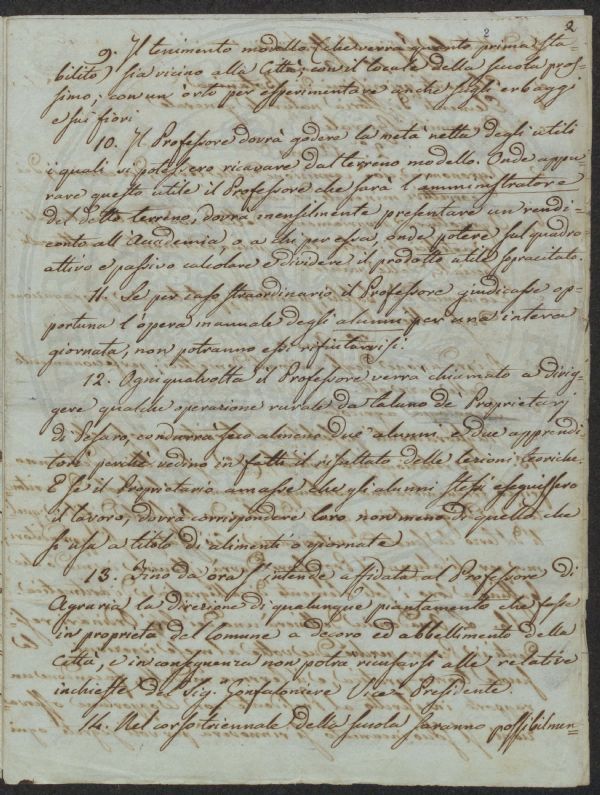 2 2
9. Il tenimento modello (che verrà quanto prima sta=
bilito) sia vicino alla Città, con il locale della scuola pros=
simo, con un'orto per esperimentare anche sugli erbaggi
e sui fiori
10. Il Professore dovrà godere la metà netta degli utili
i quali si potessero ricavare dal terreno modello. Onde appu
rare questo utile il Professore che sarà l'amministratore
del detto terreno, dovrà mensilmente presentare un rendi=
conto all'Accademia, o a chi per essa, onde potere sul quadro
attivo e passivo calcolare e dividere il prodotto utile sopracitato.
11. Se per caso straordinario il Professore giudicasse op=
portuna l'opera manuale degli alunni per una intera
giornata, non potranno essi rifiutarvisi.
12. Ogni qualvolta il Professore verrà chiamato a dirig=
gere qualche operazione rurale da taluno de' Proprietarj
di Pesaro, condurrà seco almeno due alunni e due apprendi=
tori perchè vedino in fatti il risultato delle lezioni teoriche.
E se il Proprietario amasse che gli alunni stessi eseguissero
il lavoro, dovrà corrispondere loro non meno di quello che
si usa a titolo di alimenti o giornate
13. Fino da ora s'intende affidata al Professore di
Agraria la direzione di qualunque piantamento che fosse
in proprietà del Comune a decoro ed abbellimento della
Città, e in conseguenza non potrà ricusarsi alle relative
inchieste del Sig.r Gonfaloniere Vice Presidente.
14. Nel corso triennale della scuola saranno possibilmen=